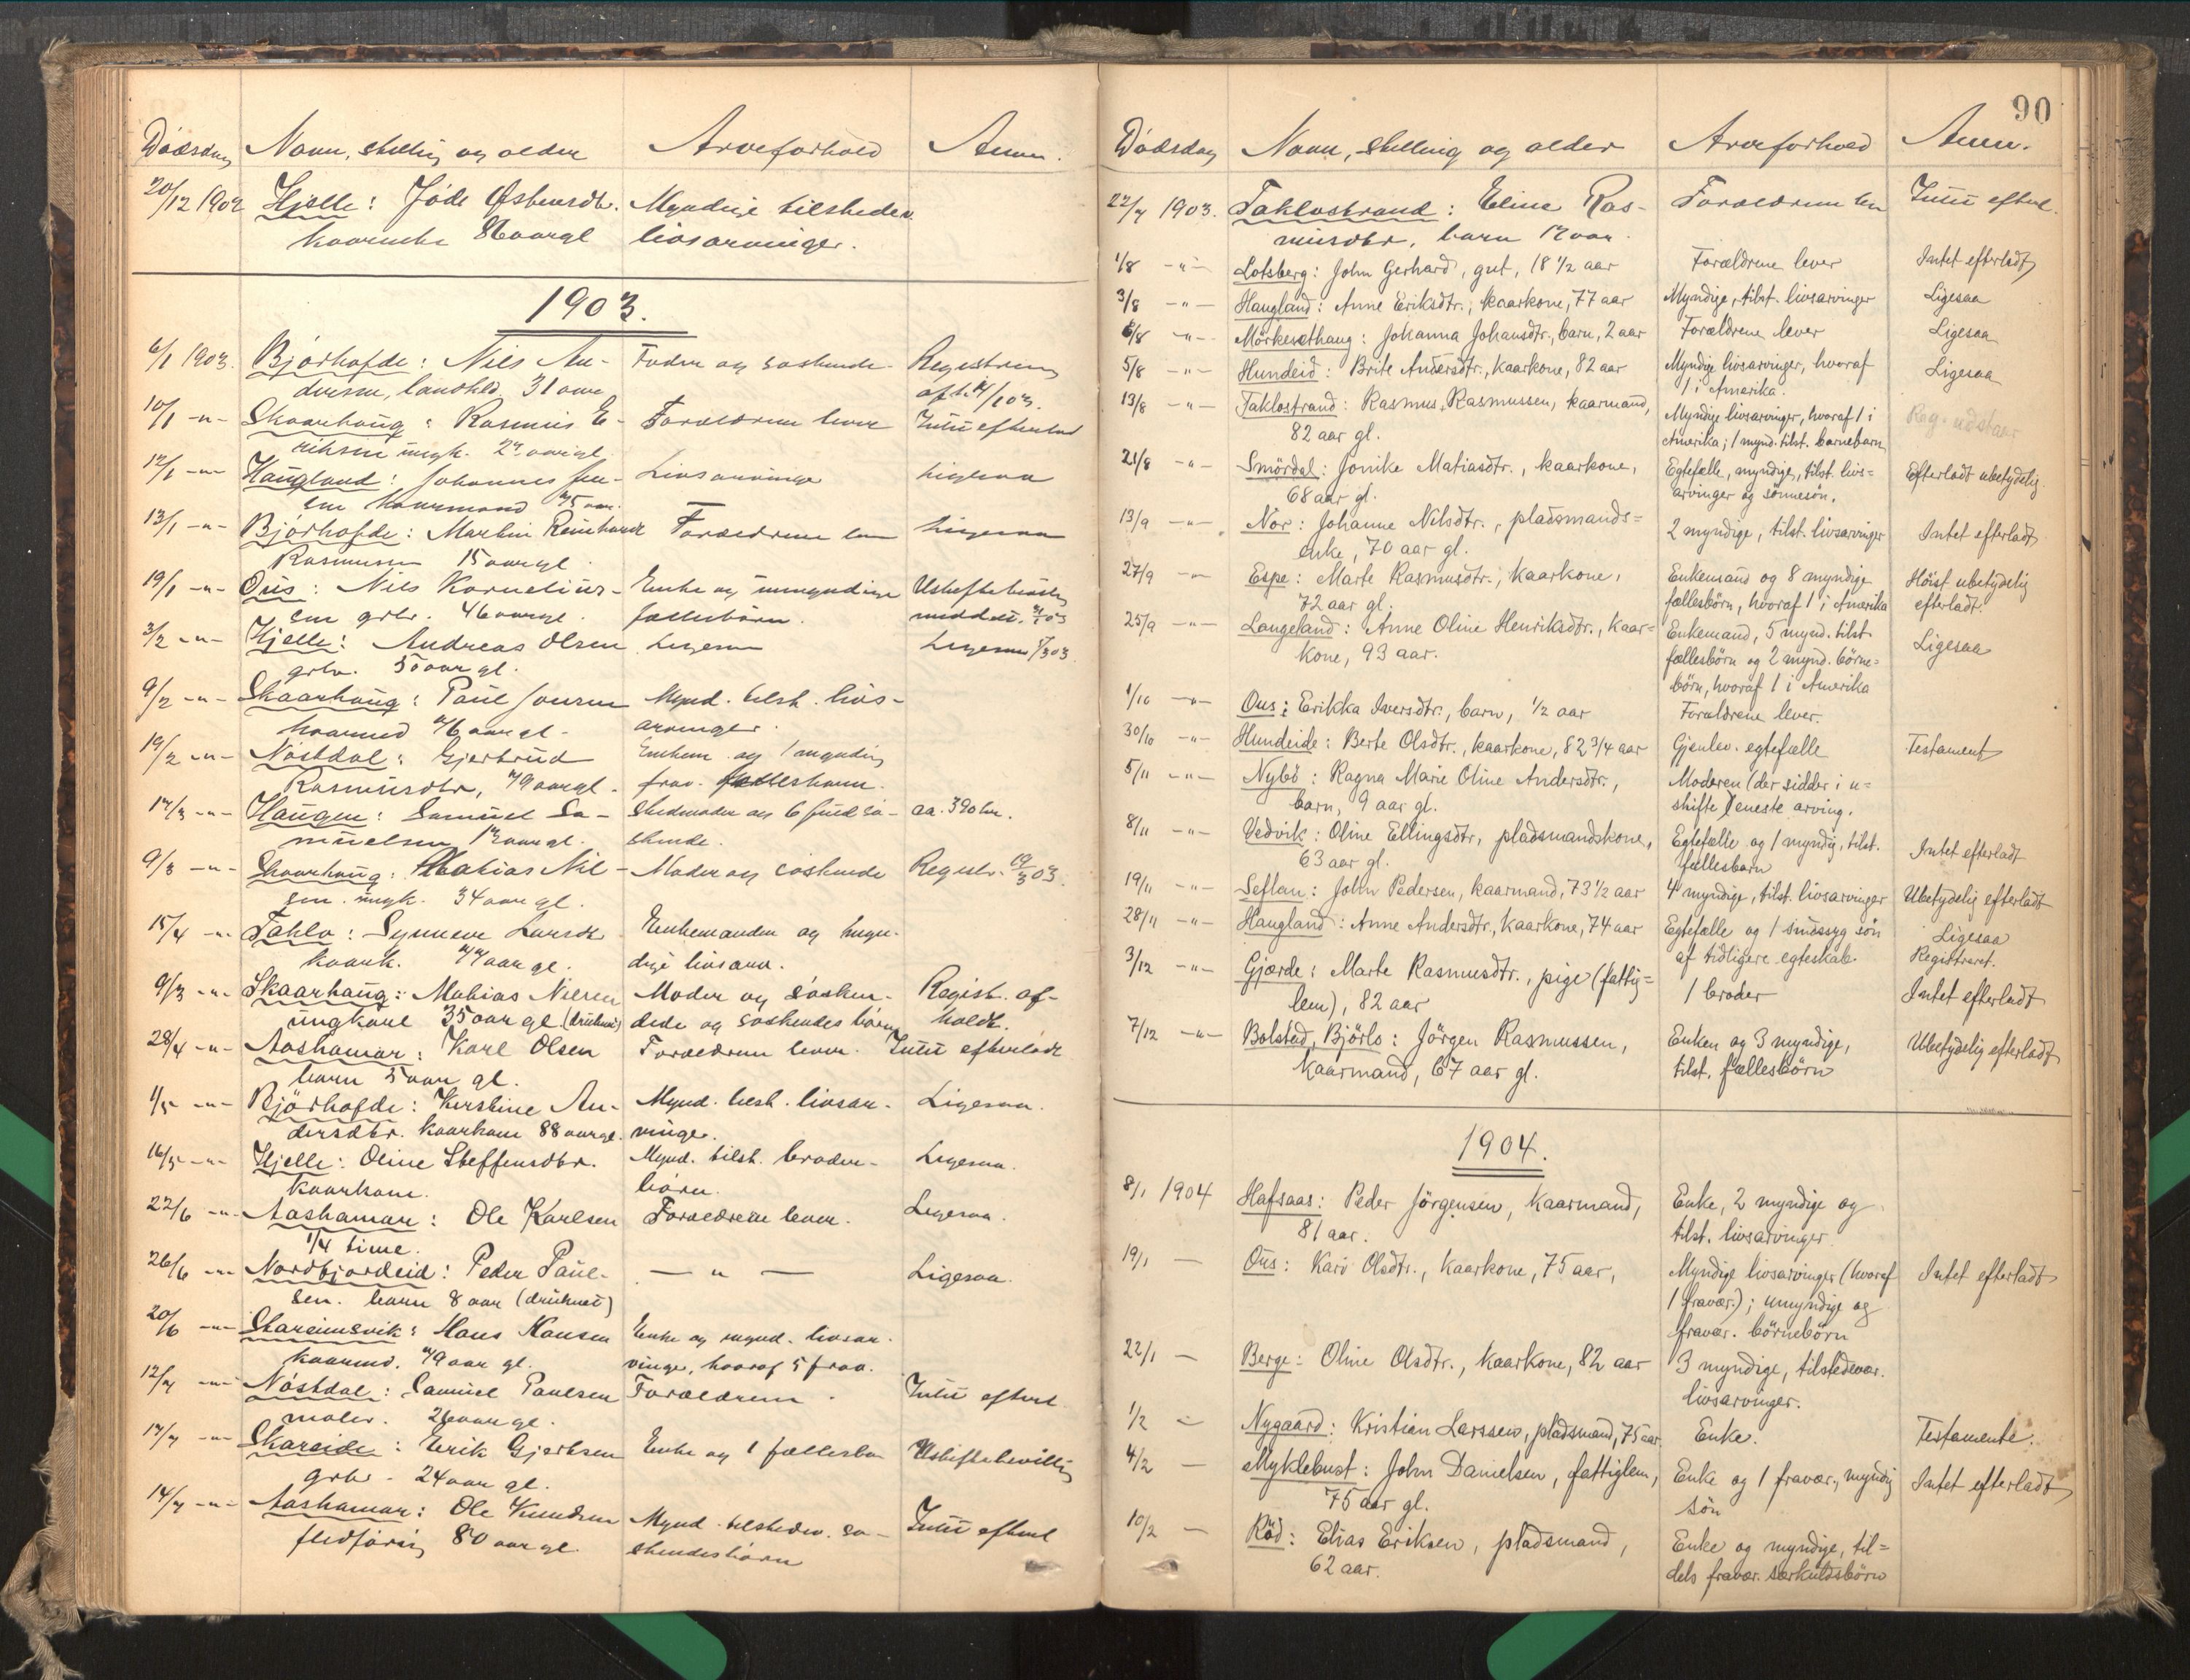 Dødsdag Navn, stilling og alder Arveforhold Anm.
20/12 1902 Hjelle: Jøde Østensdtr. Myndige tilsteder.
86 aar gl livsarvinger.
1903.
6/1 1903. Bjørhofde: Nils An- Fader og søskende Registrering
dersen, 31 aar
10/1 -"- Skaarhaug: Rasmus E- Forældrene lever Intet efterladt
riksen ungk. aar gl.
12/1 -"- Haugland: Johannes Jen- Livsarvinger Ligesaa
sen kaarmand 75 aar.
13/1 -"- Bjørhofde: Martin Reinhardt Forældrene lever Ligesaa
Rasmussen 15 aar gl
19/1 -"- Ous: Nils Kornelius- Enke og umyndige Uskiftebevilling
sen grbr. 46 aar gl. fællesbörn. meddelt.
3/2 -"- Hjelle: Andreas Olsen Ligesaa Ligesaa
grbr. aar gl.
9/2 -"- Skaarhaug: Paul Jonsen Mynd. tilst. livs-
kaarmd 76 aar gl. arvinger.
19/2 -"- Nøstdal: Gjertrud Enkem. og 1 myndig
Rasmusdtr, 79 aar gl. frav.
-"- Haugen: Samuel Sa- Stedmoder og 6 sø- aa. 390 kr.
muelsen aar gl. skende.
9/3 -"- Skaarhaug: Mathias Nil- Moder og søskende Registr. 19/3 03.
sen. ungk. 34 aar gl.
15/4 -"- Taklo: Synneve Larsdtr Enkemanden og myn-
kaark. 77 aar gl. dige livsarv.
9/3 -"- Skaarhaug: Mathias Nilsen Moder og søsken- Registr. af-
ungkarl 35 aar gl. (druknet) dede og søskendes börn holdt.
28/4 -"- Aashamar: Karl Olsen Forældrene lever. Intet efterladt
barn 5 aar gl.
1/5 -"- Bjørhofde: Kirstine An- Mynd. tilst. livsar- Ligesaa.
dersdtr. kaarkone 88 aar gl. vinger.
16/5 -"- Hjelle: Oline Steffensdtr. Mynd. tilst. broder- Ligesaa.
kaarkone. börn.
22/6 -"- Aashamar: Ole Karlsen Forældrene lever. Ligesaa.
1/4 time.
26/6 -"- Nordfjordeid: Peder Paul- — " — Ligesaa.
sen. barn 8 aar (druknet)
20/6 -"- Stareimsvik: Hans Hansen Enke og mynd. livsar-
kaarmd. 79 aar gl. vinger, hvoraf 5 frav.
12/7 -"- Nøstdal: Samuel Paulsen Forældrene. Intet efterl.
maler. 26 aar gl.
17/7 -"- Skareide: Erik Gjertsen Enke og 1 fællesbarn Uskiftebevilling
grbr. 24 aar gl.
14/7 -"- Aashamar: Ole Knudsen Mynd. tilstedev. sø- Intet efterl
fledføring 80 aar gl. skendesbörn
90
Dødsdag Navn, stilling og alder Arveforhold Anm.
22/7 1903. Taklostrand: Eline Ras- Forældrene lever Intet efterl.
musdtr, barn 12 aar.
1/8 -"- Lotsberg: John Gerhard, gut, 18 1/2 aar Forældrene lever Intet efterladt
3/8 -"- Haugland: Anne Eriksdtr., kaarkone, 77 aar Myndige, tilst. livsarvinger Ligesaa
6/8 -"- Mörkesethaug: Johanna Johansdtr., barn, 2 aar Forældrene lever Ligesaa
5/8 -"- Hundeid: Brite Andersdtr., kaarkone, 82 aar Myndige livsarvinger, hvoraf Ligesaa
1 i Amerika.
13/8 -"- Taklostrand: Rasmus Rasmussen, kaarmand, Myndige livsarvinger, hvoraf 1 i Reg. udstaar
82 aar gl. Amerika; 1 mynd. tilst. barnebarn
21/8 -"- Smördal: Jonike Matiasdtr., kaarkone, Egtefælle, myndige, tilst. livs= Efterladt ubetydelig
68 aar gl. arvinger og sönnesön.
13/9 -"- Nor: Johanne Nilsdtr., pladsmands= 2 myndige, tilst. livsarvinger Intet efterladt
enke, 70 aar gl.
27/9 -"- Espe: Marte Rasmusdtr., kaarkone, Enkemand og 8 myndige Höist ubetydelig
72 aar gl. fællesbörn, hvoraf 1 i Amerika efterladt.
25/9 -"- Langeland: Anne Oline Henriksdtr., kaar= Enkemand, 5 mynd. tilst. Ligesaa
kone, 93 aar. fællesbörn og 2 mynd. börne=
börn, hvoraf 1 i Amerika
1/10 -"- Ous: Erikka Iversdtr., barn, 1/2 aar Forældrene lever.
30/10 -"- Hundeide: Berte Olsdtr., kaarkone, 82 3/4 aar Gjenlev. egtefælle Testament
5/11 -"- Nybö: Ragna Marie Oline Andersdtr., Moderen (der sidder i u=
barn, 9 aar gl. skifte) eneste arving.
8/11 -"- Vedvik: Oline Ellingsdtr, pladsmandskone, Egtefælle og 1 myndig, tilst. Intet efterladt
63 aar gl. fællesbarn
19/11 -"- Leflau: John Pedersen, kaarmand, 73 1/2 aar 4 myndige, tilst. livsarvinger Ubetydelig efterladt
28/11 -"- Haugland: Anne Andersdtr., kaarkone, 74 aar Egtefælle og 1 sindssyg sön Ligesaa
af tidligere egteskab. Registreret.
3/12 -"- Gjærde: Marte Rasmusdtr., pige (fattig= 1 broder Intet efterladt
lem), 82 aar
7/12 -"- Bolstad, Björlo: Jörgen Rasmussen, Enken og 3 myndige, Ubetydelig efterladt
kaarmand, 67 aar gl. tilst. fællesbörn
1904.
8/1 1904 Hafsaas: Peder Jörgensen, kaarmand, Enke, 2 myndige og
81 aar. tilst. livsarvinger
19/1 — Ous: Kari Olsdtr., kaarkone, 75 aar, Myndige livsarvinger (hvoraf Intet efterladt
1 fravær.); umyndige og
fravær. börnebörn
22/1 — Berge: Oline Olsdtr., kaarkone, 82 aar 3 myndige, tilstedevær.
livsarvinger.
1/2 — Nygaard: Kristian Larssen, pladsmand, 75 aar. Enke. Testamente.
4/2 — Myklebust: John Danielsen, fattiglem, Enke og 1 fravær., myndig Intet efterladt
75 aar gl. sön
10/2 — Röd: Elias Eriksen, pladsmand, Enke og myndige, til=
62 aar. dels fravær. særkuldsbörn